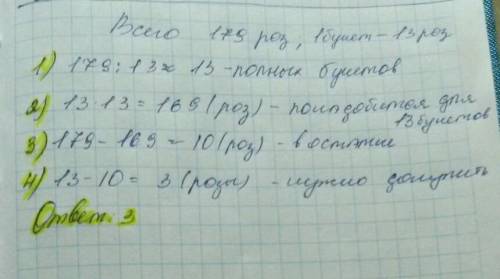 Всего 179 роз, 1 букет - 13 роз
1) 179 : 13 ≈ 13 - полных букетов
2) 13 · 13 = 169 (роз) - понадобится для
13 букетов
3) 179 - 169 = 10 (роз) - в остатке
4) 13 - 10 = 3 (розы) - нужно докупить
Ответ. 3